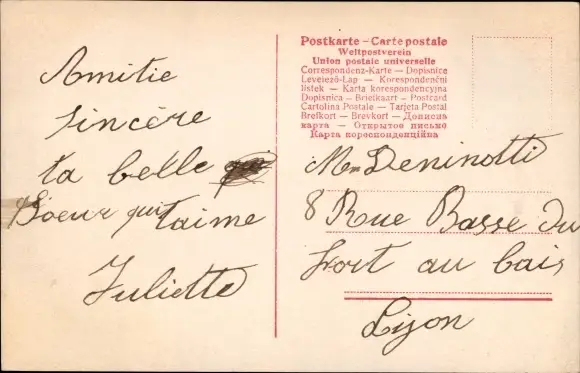 Amitie
sincère
ta belle
Soeur qui t'aime
Juliette
Postkarte – Carte postale
Weltpostverein
Union postale universelle
Correspondenz-Karte — Dopisnice
Levelező-Lap — Korespondenční
lístek — Karta korespondencyjna
Dopisnica — Briefkaart — Postcard
Cartolina Postale — Tarjeta Postal
Brefkort — Brevkort — Дописна
карта — Открытое письмо
Карта кореспонденційна
Mme Deninotti
8 Rue Basse du
Port au bois
Lyon